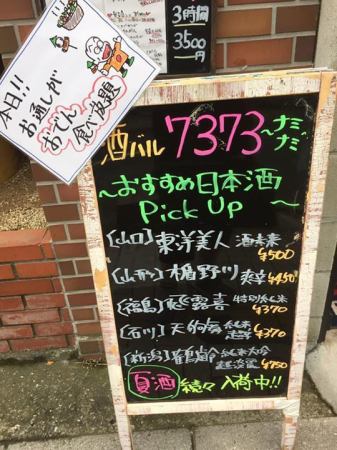 3時間
3,500円
本日!!
お通しが
おでん
食べ放題
酒バル 7373 〜ナミナミ〜
〜おすすめ日本酒
Pick Up 〜
〔山口〕東洋美人 酒未来 ¥500
〔山形〕楯野川 爽辛 ¥450
〔福島〕飛露喜 特別純米 ¥370
〔石川〕天狗舞 純米 ¥370
〔新潟〕鶴齢 純米大吟 ¥750
夏酒 続々入荷中!!